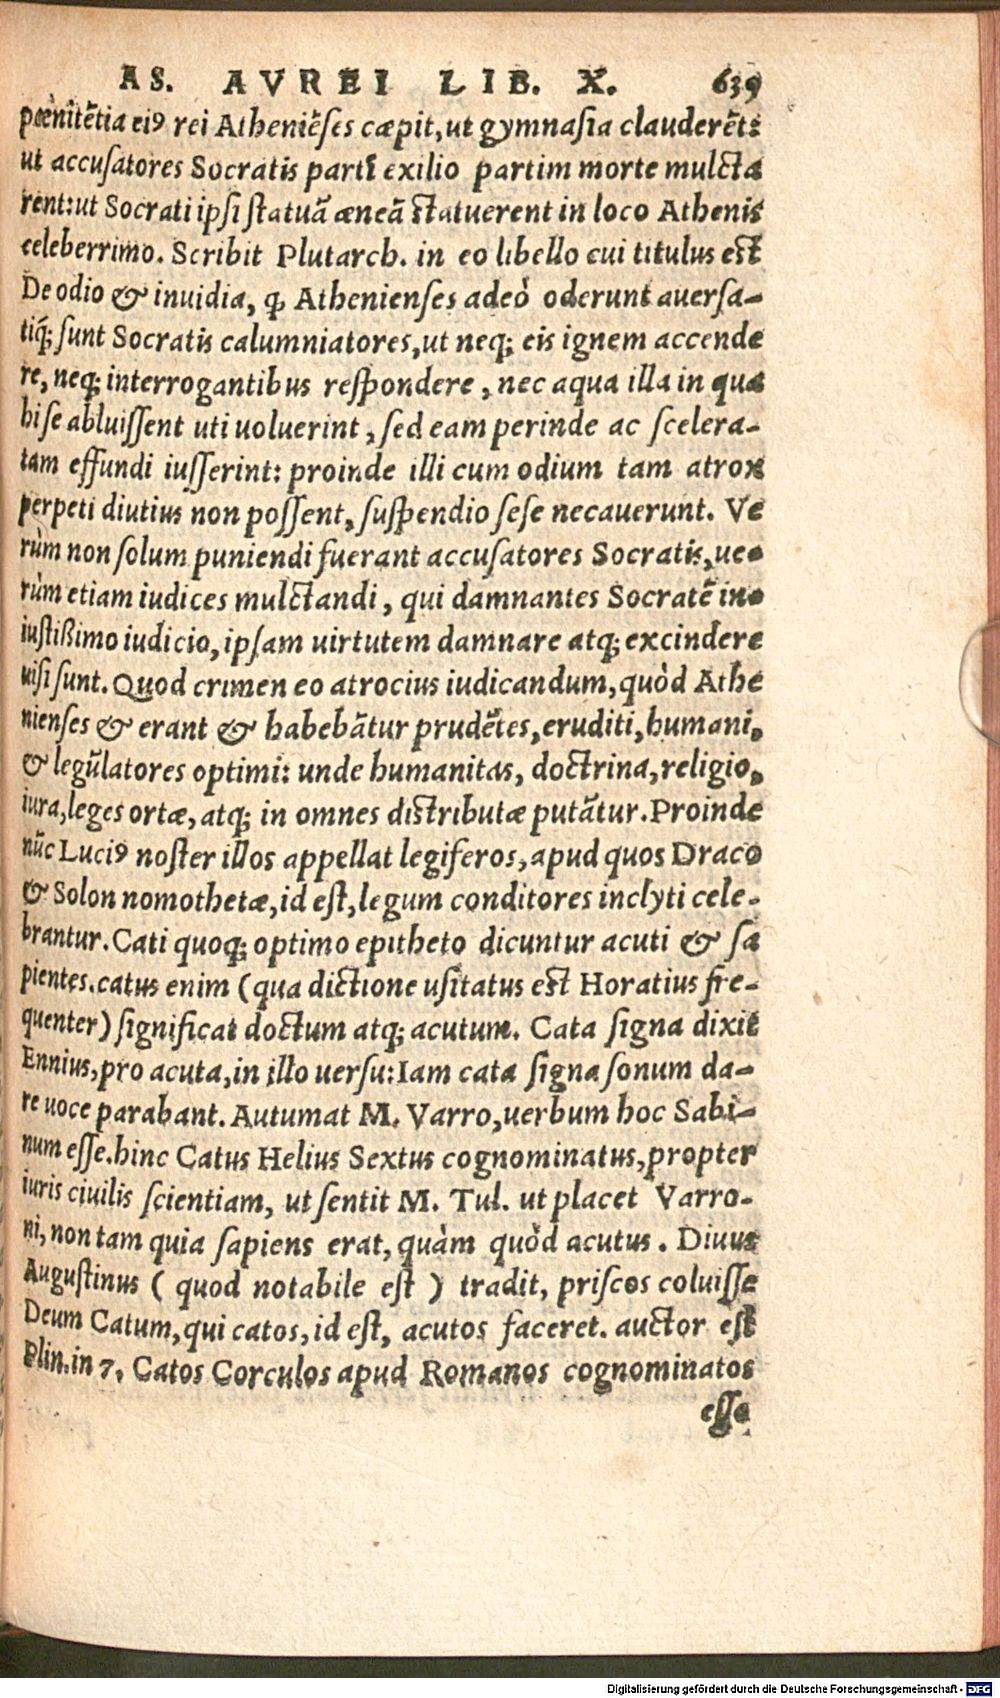 AS. AVREI LIB. X. 639
pœnitẽtia eiꝰ rei Atheniẽſes cæpit, ut gymnaſia clauderẽt:
ut accuſatores Socratis partĩ exilio partim morte mulcta
rent: ut Socrati ipſi ſtatuã æneã ſtatuerent in loco Athenis
celeberrimo. Scribit Plutarch. in eo libello cui titulus eſt
De odio & inuidia, ꝙ Athenienſes adeò oderunt auerſa-
tiq́ꝫ ſunt Socratis calumniatores, ut neqꝫ eis ignem accende
re, neqꝫ interrogantibus reſpondere, nec aqua illa in qua
hi ſe abluiſſent uti uoluerint, ſed eam perinde ac ſcelera-
tam effundi iuſſerint: proinde illi cum odium tam atrox
perpeti diutius non poſſent, ſuſpendio ſeſe necauerunt. Ve
rùm non ſolum puniendi fuerant accuſatores Socratis, ue-
rùm etiam iudices mulctandi, qui damnantes Socratẽ in-
iuſtißimo iudicio, ipſam uirtutem damnare atqꝫ excindere
uiſi ſunt. Quod crimen eo atrocius iudicandum, quòd Athe
nienſes & erant & habebãtur prudẽtes, eruditi, humani,
& legũlatores optimi: unde humanitas, doctrina, religio,
iura, leges ortæ, atqꝫ in omnes diſtributæ putãtur. Proinde
nũc Luciꝰ noſter illos appellat legiferos, apud quos Draco
& Solon nomothetæ, id eſt, legum conditores inclyti cele-
brantur. Cati quoqꝫ optimo epitheto dicuntur acuti & ſa
pientes. catus enim (qua dictione uſitatus eſt Horatius fre-
quenter) ſignificat doctum atqꝫ acutum. Cata ſigna dixit
Ennius, pro acuta, in illo uerſu: Iam cata ſigna ſonum da-
re uoce parabant. Autumat M. Varro, uerbum hoc Sabi-
num eſſe. hinc Catus Helius Sextus cognominatus, propter
iuris ciuilis ſcientiam, ut ſentit M. Tul. ut placet Varro-
ni, non tam quia ſapiens erat, quàm quòd acutus. Diuus
Auguſtinus ( quod notabile eſt ) tradit, priſcos coluiſſe
Deum Catum, qui catos, id eſt, acutos faceret. auctor eſt
Plin. in 7. Catos Corculos apud Romanos cognominatos
eſſe
Digitalisierung gefördert durch die Deutsche Forschungsgemeinschaft - DFG